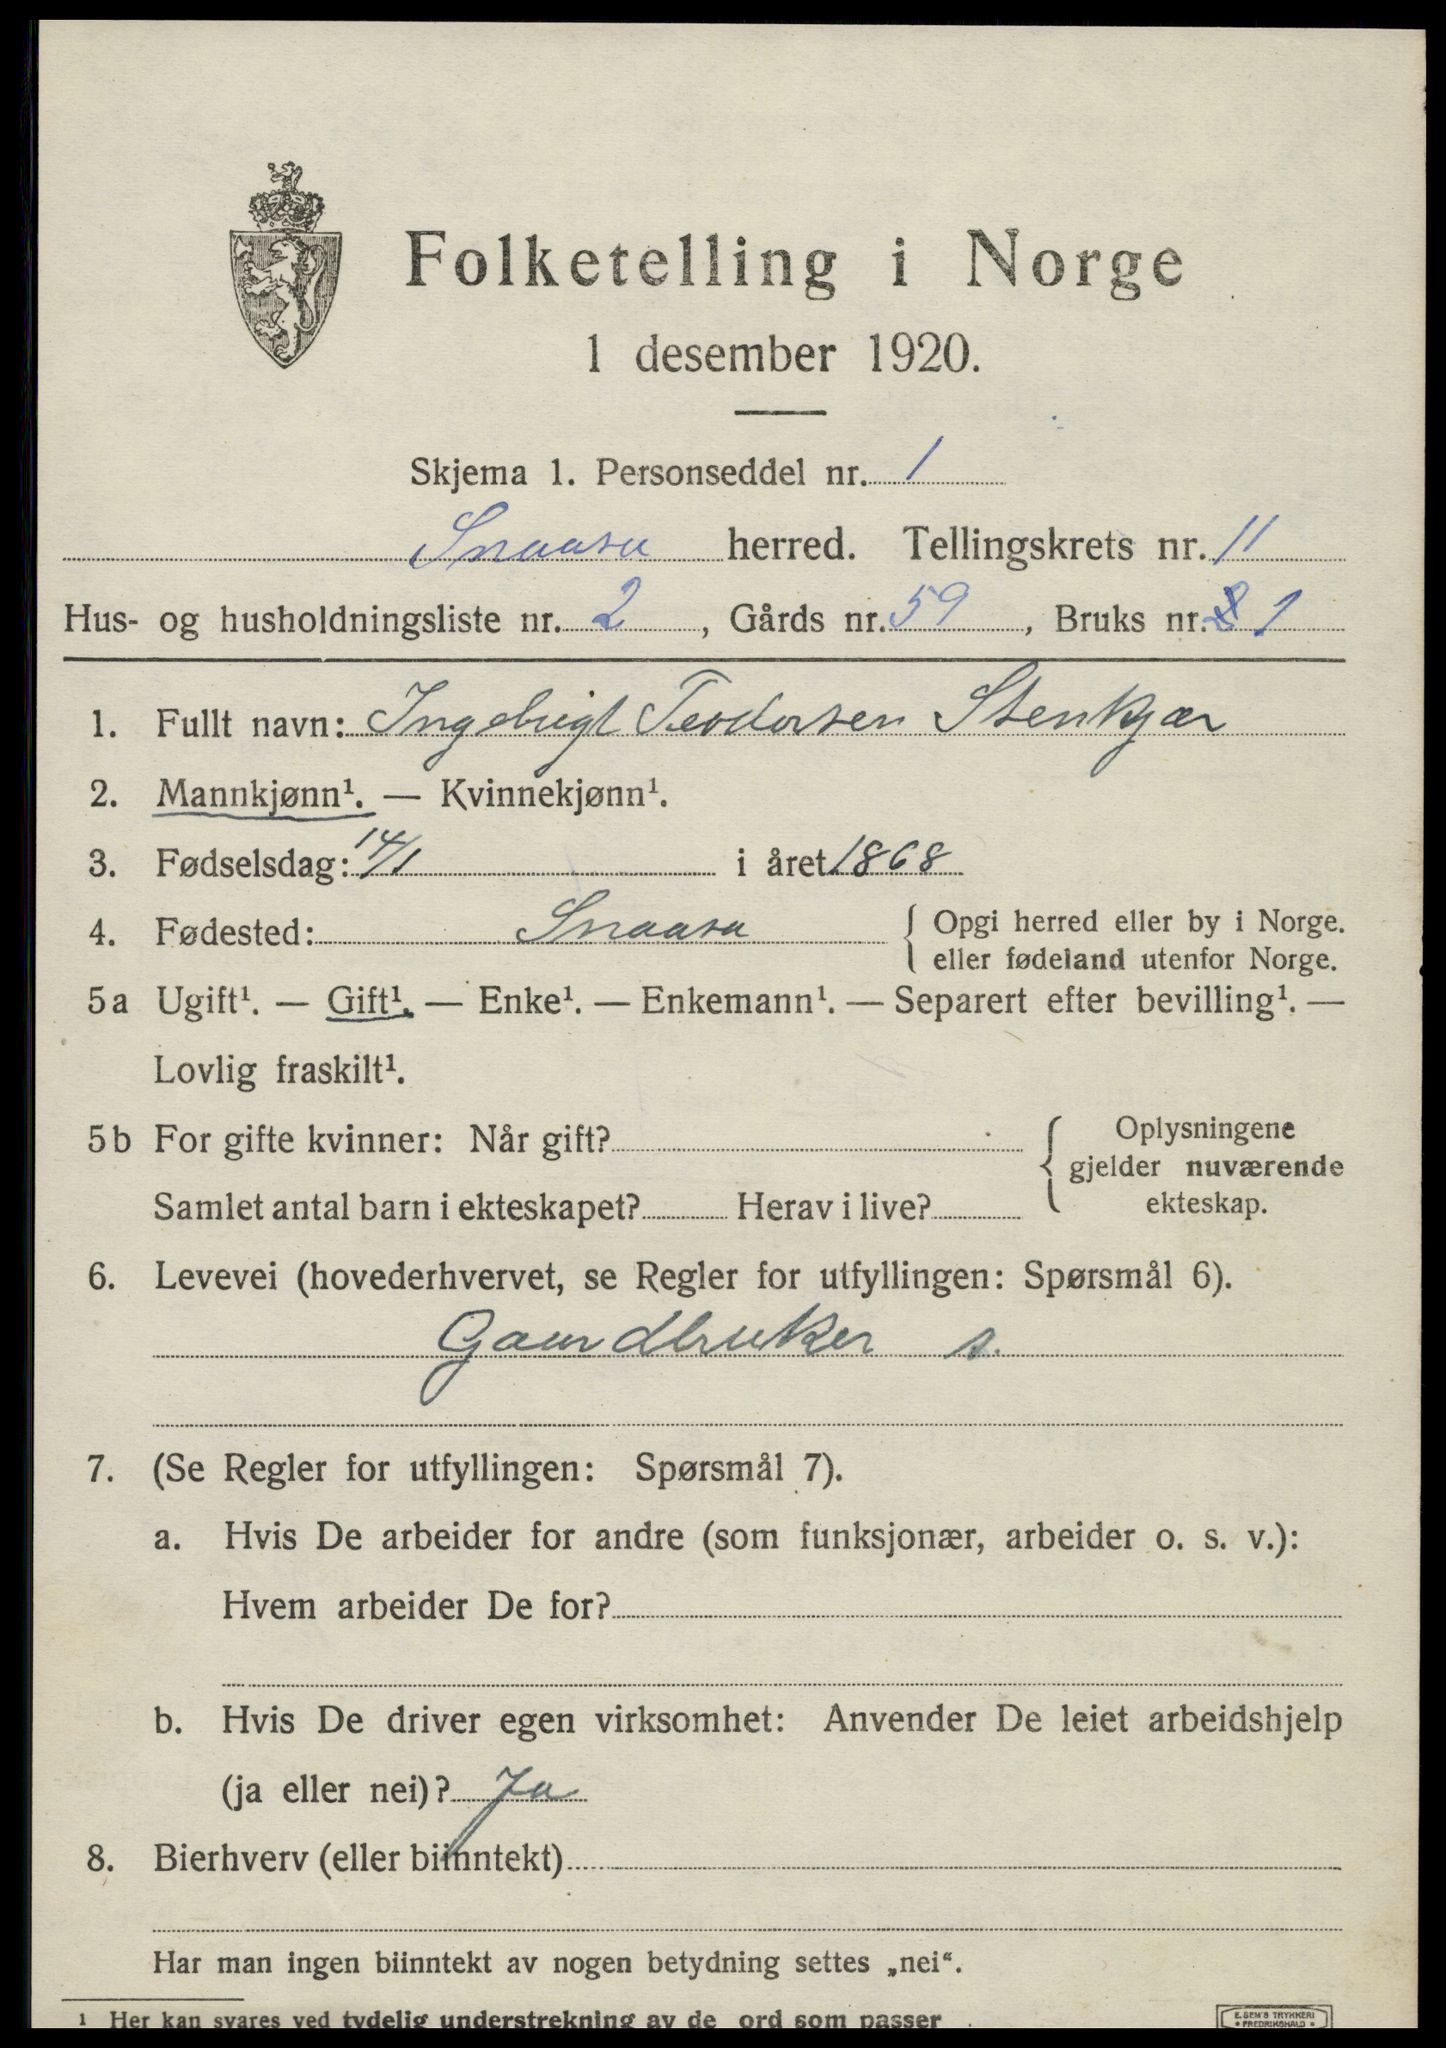 Folketelling i Norge
1 desember 1920.
Skjema 1. Personseddel nr. 1
Snaasa herred. Tellingskrets nr. 11
Hus- og husholdningsliste nr. 2, Gårds nr. 59, Bruks nr. 1
1. Fullt navn: Ingebrigt Teodorsen Stenkjær
2. Mannkjønn¹. — Kvinnekjønn¹.
3. Fødselsdag: 14/1 i året 1868
4. Fødested: Snaasa { Opgi herred eller by i Norge.
eller fødeland utenfor Norge.
5a Ugift¹. — Gift¹. — Enke¹. — Enkemann¹. — Separert efter bevilling¹. —
Lovlig fraskilt¹.
5b For gifte kvinner: Når gift? { Oplysningene
gjelder nuværende
Samlet antal barn i ekteskapet? Herav i live? ekteskap.
6. Levevei (hovederhvervet, se Regler for utfyllingen: Spørsmål 6).
Gaardbruker s.
7. (Se Regler for utfyllingen: Spørsmål 7).
a. Hvis De arbeider for andre (som funksjonær, arbeider o. s. v.):
Hvem arbeider De for?
b. Hvis De driver egen virksomhet: Anvender De leiet arbeidshjelp
(ja eller nei)? Ja
8. Bierhverv (eller biinntekt)
Har man ingen biinntekt av nogen betydning settes „nei“.
¹ Her kan svares ved tydelig understrekning av de ord som passer
E. SEM'S TRYKKERI
• FREDRIKSHALD •